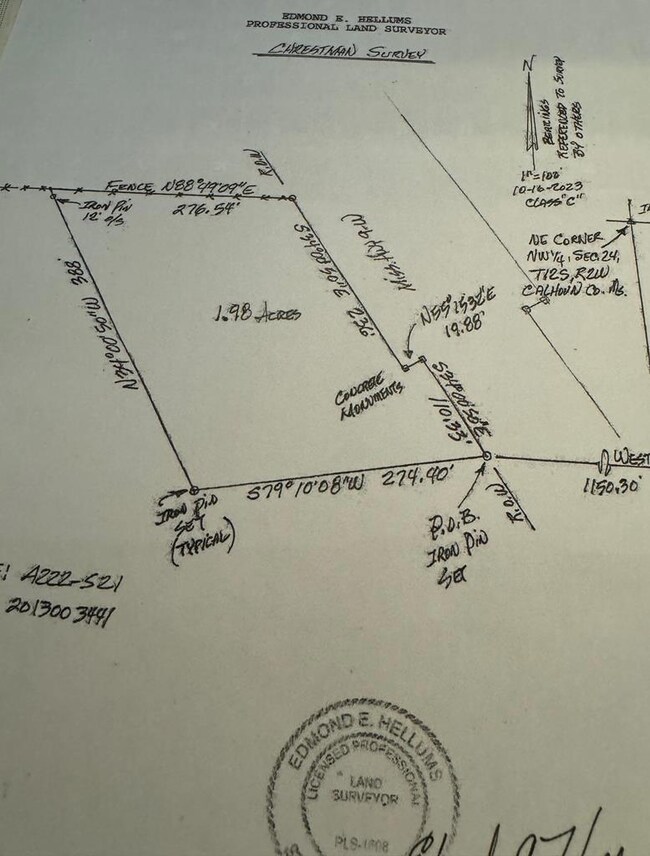 EDMOND E. HELLUMS
PROFESSIONAL LAND SURVEYOR
CHRESTMAN SURVEY
N
BEARINGS
REFERENCED TO SURVEY
BY OTHERS
1"=100'
10-16-2023
CLASS "C"
R.O.W
FENCE N88°49'09"E
276.54'
IRON PIN
12' S/S
NE CORNER
NW 1/4, SEC. 24,
T12S, R2W
CALHOUN CO. MS.
N34°00'50"W 388'
1.98 ACRES
N55°15'32"E
19.88'
CONCRETE
MONUMENTS
S34°00'50"E
110.33'
WEST
1150.30'
S79°10'08"W 274.40'
IRON PIN
SET
(TYPICAL)
P.O.B.
IRON PIN
SET
R.O.W
A222-521
201300 3441
EDMOND E. HELLUMS
LICENSED PROFESSIONAL
LAND
SURVEYOR